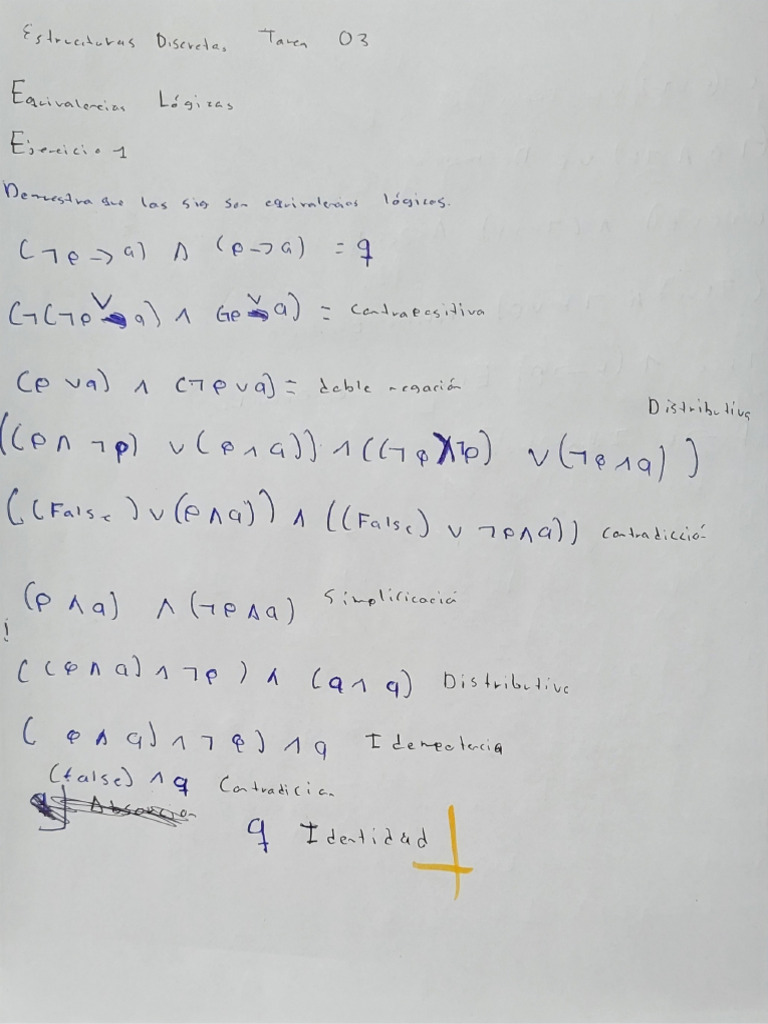 Estructuras Discretas Tarea 03
Equivalencias Lógicas
Ejercicio 1
Demuestra que las sig son equivalencias lógicas.
(¬p → q) ∧ (p → q) = q
(¬(¬p ∨ q) ∧ (¬p ∨ q) = Contrapositiva
(p ∨ q) ∧ (¬p ∨ q) = doble negación
Distributiva
((p ∧ ¬p) ∨ (p ∧ q)) ∧ ((¬p ∧ ¬p) ∨ (¬p ∧ q))
((False) ∨ (p ∧ q)) ∧ ((False) ∨ ¬p ∧ q)) Contradicción
(p ∧ q) ∧ (¬p ∧ q) Simplificación
!
((p ∧ q) ∧ ¬p) ∧ (q ∧ q) Distributiva
(p ∧ q) ∧ ¬p) ∧ q Idempotencia
(false) ∧ q Contradicion
q Identidad